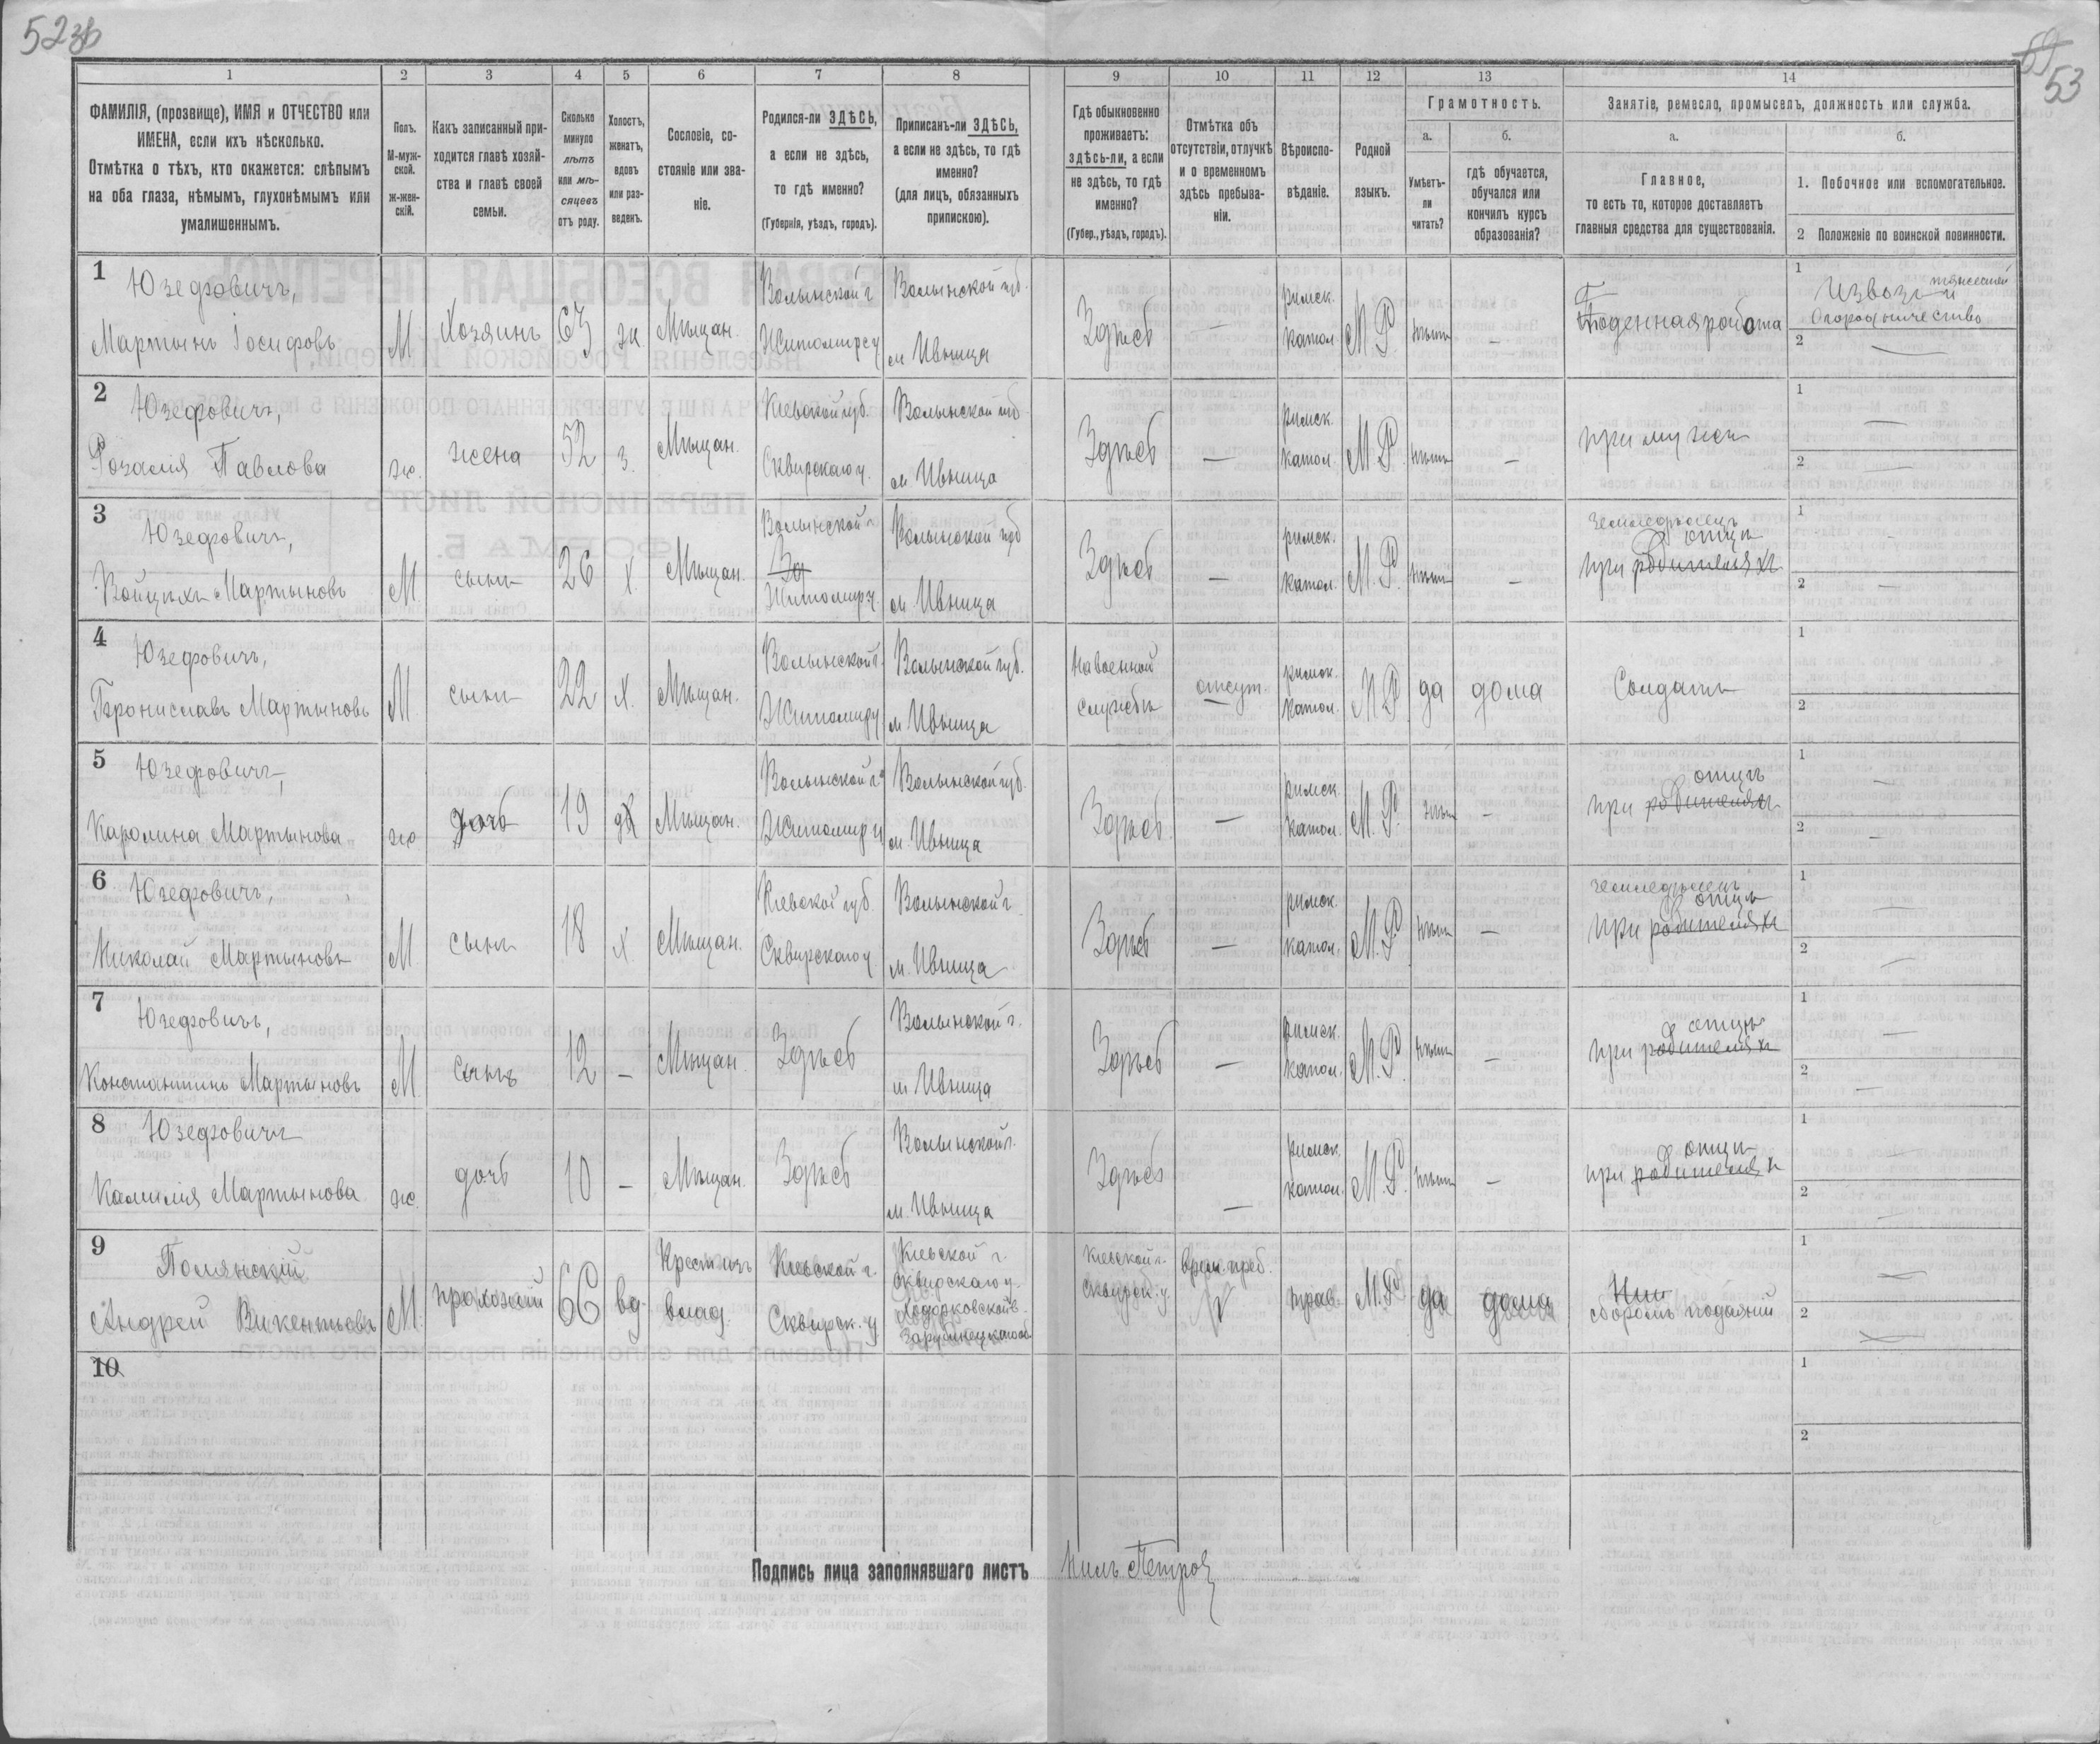 53
1 2 3 4 5 6 7 8 9 10 11 12 13 14
ФАМИЛІЯ, (прозвище), ИМЯ и ОТЧЕСТВО или
ИМЕНА, если ихъ нѣсколько.
Отмѣтка о тѣхъ, кто окажется: слѣпымъ
на оба глаза, нѣмымъ, глухонѣмымъ или
умалишеннымъ.
Полъ.
М-муж-
ской.
ж-жен-
скій.
Какъ записанный при-
ходится главѣ хозяй-
ства и главѣ своей
семьи.
Сколько
минуло
лѣтъ
или мѣ-
сяцевъ
отъ роду.
Холостъ,
женатъ,
вдовъ
или раз-
веденъ.
Сословіе, со-
стояніе или зва-
ніе.
Родился-ли ЗДѢСЬ,
а если не здѣсь,
то гдѣ именно?
(Губернія, уѣздъ, городъ).
Приписанъ-ли ЗДѢСЬ,
а если не здѣсь, то гдѣ
именно?
(для лицъ, обязанныхъ
припискою).
Гдѣ обыкновенно
проживаетъ:
здѣсь-ли, а если
не здѣсь, то гдѣ
именно?
(Губер., уѣздъ, городъ).
Отмѣтка объ
отсутствіи, отлучкѣ
и о временномъ
здѣсь пребыва-
ніи.
Вѣроиспо-
вѣданіе.
Родной
языкъ.
Грамотность.
а.
Умѣетъ-
ли
читать?
б.
гдѣ обучается,
обучался или
кончилъ курсъ
образованія?
Занятіе, ремесло, промыселъ, должность или служба.
а.
Главное,
то есть то, которое доставляетъ
главныя средства для существованія.
б.
1. Побочное или вспомогательное.
2 Положеніе по воинской повинности.
1 Юзефовичъ,
Мартынъ Іосифовъ
М Хозяинъ 63 ж Мѣщан.
Волынской г
Житомир у
Волынской губ.
м Ивница
Здѣсь — римск.
катол. М.Р. нѣтъ —
Поденная работа
1 Извозъ и
Огородничество
2 —
2 Юзефовичъ,
Розалія Павлова
ж. жена 52 з. Мѣщан.
Кіевской губ.
Сквирскаго у.
Волынской губ
м Ивница
Здѣсь — римск.
катол. М.Р. нѣтъ —
при мужѣ
1 —
2 —
3 Юзефовичъ,
Войцѣхъ Мартыновъ
М. сынъ 26 х. Мѣщан.
Волынской г
Зд
Житомир у.
Волынской губ
м. Ивница
Здѣсь — римск.
катол. М.Р. нѣтъ —
земледѣлецъ
отцѣ
при родителяхъ
1 -
2 —
4 Юзефовичъ,
Брониславъ Мартыновъ
М сынъ 22 х. Мѣщан.
Волынской г.
Житомир у
Волынской губ.
м. Ивница
На военной
службѣ
отсут. римск.
катол. М.Р да дома Солдатъ
1
2
5 Юзефовичъ,
Каролина Мартынова
ж дочь 19 Мѣщан.
Волынской г.
Житомир у
Волынской губ.
м. Ивница
Здѣсь. — римск.
катол. М.Р. нѣтъ —
отцѣ
при родителяхъ
1 —
2 —
6 Юзефовичъ,
Николай Мартыновъ
М сынъ 18 х. Мѣщан.
Кіевской губ.
Сквирскаго у
Волынской г
м. Ивница
Здѣсь — римск.
катол. М.Р нѣтъ —
земледѣлецъ
отцѣ
при родителяхъ
1 —
2 —
7 Юзефовичъ,
Константинъ Мартыновъ
М сынъ 12 — Мѣщан. Здѣсь
Волынской г.
м Ивница
Здѣсь — римск.
катол. М.Р. нѣтъ —
отцѣ
при родителяхъ
1 —
2 —
8 Юзефовичъ
Камилія Мартынова
ж. дочь 10 — Мѣщан. Здѣсь
Волынской г.
м. Ивница
Здѣсь — римск.
катол. М.Р. нѣтъ —
отцѣ
при родителяхъ
1 —
2 —
9 Полянскій
Андрей Викентьевъ
М. прохожій 66 вд.
Крестьянъ
влад.
Кіевской г.
Сквирск. у
Кіевской г.
Сквирскаго у.
Ходорковской в.
Кіевской г.
Сквирск. у
врем. преб. прав. М.Р да дома
сборомъ подаяній
1 —
2 —
10
1
2
Подпись лица заполнявшаго листъ